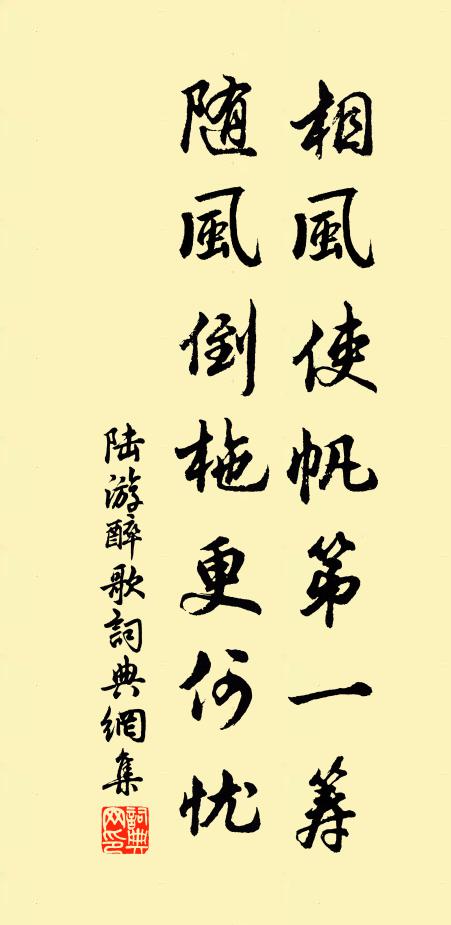 相風使帆第一筹
随風倒柂更何忧
陆游醉歌詞典網集
詞典网印